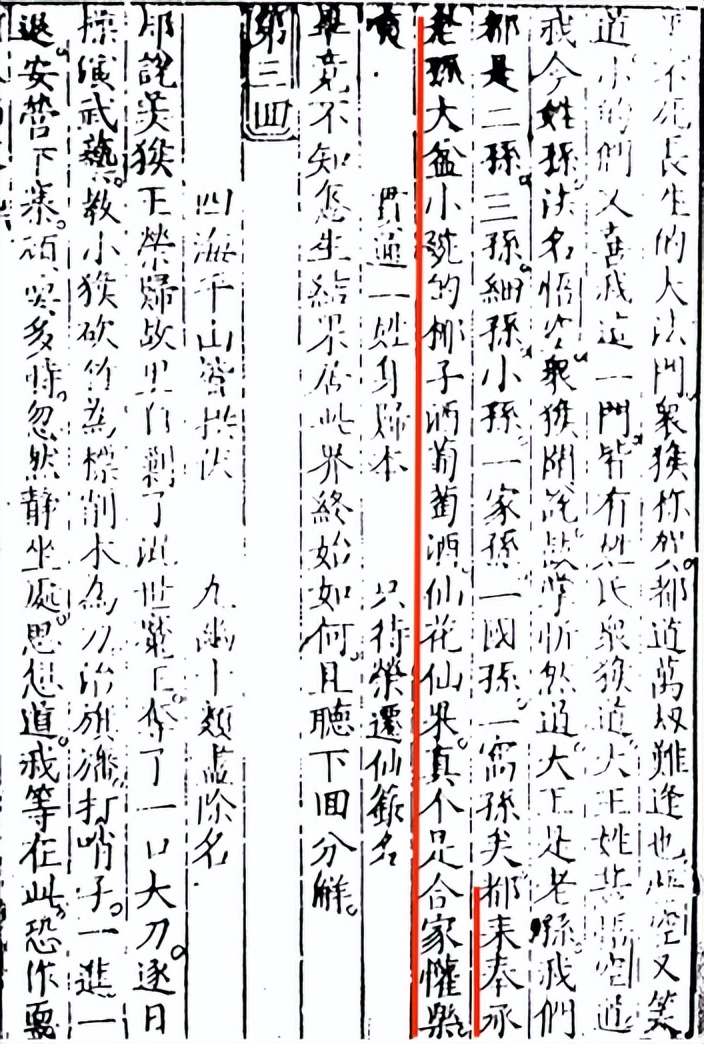 不死長生的大法門。衆猴稱賀。都道萬劫難逢也。悟空又笑
道。小的們又喜我這一門。皆有姓氏。衆猴道。大王姓甚。悟空道。
我今姓孫。法名悟空。衆猴聞說。鼓掌忻然道。大王是老孫。我們
都是二孫。三孫。細孫。小孫。一家孫。一國孫。一窩孫矣。都來奉承
老孫。大盆小碗的椰子酒葡萄酒。仙花仙果。真个是合家懽樂。
貫通一姓身歸本 只待榮遷仙籙名
畢竟不知怎生結果居此界終始如何且聽下回分解。
第三回
四海千山皆拱伏 九幽十類盡除名
却說美猴王榮歸故里自剿了混世魔王。奪了一口大刀。逐日
操演武藝。教小猴砍竹為標。削木為刀。治旗旛。打哨子。一進一
退。安營下寨。頑耍多時。忽然靜坐處。思想道。我等在此。恐作耍